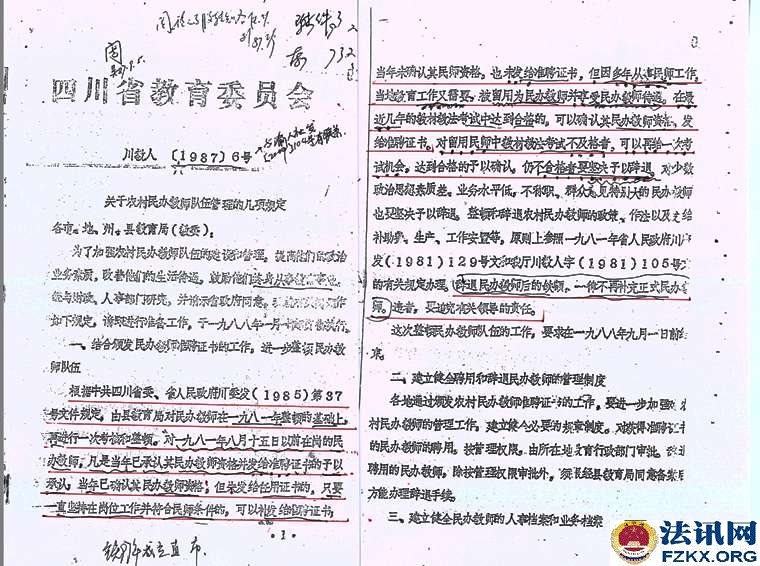 四川省教育委员会
川教人〔1987〕6号
关于农村民办教师队伍管理的几项规定
各市、地、州、县教育局(教委):
为了加强农村民办教师队伍的建设和管理,提高他们的政治
业务素质,改善他们的生活待遇,鼓励他们终身从事教育事业,
经与财政、人事部门研究,并请示省政府同意,
如下规定,请即进行准备工作,于一九八八年一月十
一、结合颁发民办教师准聘证书的工作,进一步整顿民办教
师队伍
根据中共四川省委、省人民政府川委发(1985)第37
号文件规定,由县教育局对民办教师在一九八一年整顿的基础上,
再进行一次考核和整顿。对一九八一年八月十五日以前在岗的民
办教师,凡是当年已承认其民办教师资格并发给准聘证书的予以
承认。当年已确认其民办教师资格,但未发给任用证书的,只要
一直坚持在岗位工作并符合民师条件的,可以补发给准聘证书;
1
当年未确认其民师资格,也未发给准聘证书,但因多年从事民师工作,
当地教育工作又需要,被留用为民办教师并享受民办教师待遇。在最
近几年的教材教法考试中达到合格的,可以确认其民师资格,发
给准聘证书。对留用民师中教材教法考试不及格者,可以再给一次考
试机会,达到合格的予以确认,仍不合格者要坚决予以辞退。对少数
政治思想素质差、业务水平低、不称职、群众意见特别大的民办教师
也要坚决予以辞退。整顿和辞退农村民办教师的政策、作法以及生活
补助费、生产、工作安置等,原则上参照一九八一年省人民政府川府
发(1981)129号文和教厅川教人字(1981)105号文
的有关规定办理。辞退民办教师后的缺额,一律不再补充正式民办教
师。违者,要追究有关领导的责任。
这次整顿民办教师队伍的工作,要求在一九八八年九月一日前结
束。
二、建立健全聘用和辞退民办教师的管理制度
各地通过颁发农村民办教师准聘证书的工作,要进一步加强对农
村民办教师的管理工作,建立健全必要的规章制度。对获得准聘证书
的民办教师的聘用,按管理权限,由所在地教育行政部门审批。辞退
聘用的民办教师,除按管理权限审批外,须报经县教育局同意备案后
方能办理辞退手续。
三、建立健全民办教师的人事档案和业务档案
法讯网
FZKX.ORG